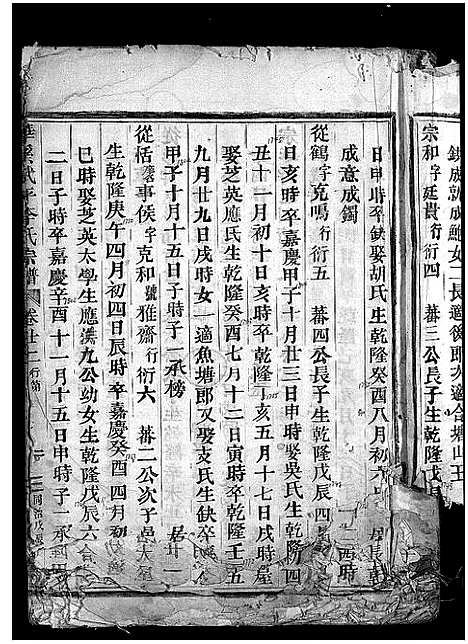 鎮成就成鮑女二長適後頭次適合塘山王
宗和字廷貴行衍四 蕃三公長子生乾隆戊
日申時卒缺娶胡氏生乾隆癸酉八月初六
成意成鐲
從鶴字克鳴行衍五 蕃四公長子生乾隆戊辰四
日亥時卒嘉慶甲子十月廿三日申時娶吳氏生乾隆
丑十一月初十日亥時卒乾隆丁亥五月十七日戌時
娶芝英應氏生乾隆癸酉七月十二日寅時卒乾隆壬
九月廿九日戌時女一適魚塘郎又娶支氏生缺卒
甲子十月十五日子時子一承榜
從恬事侯字克和號雅齋行衍六 蕃二公次子
生乾隆庚午四月初四日辰時卒嘉慶癸酉四月初
巳時娶芝英太學生應漢九公幼女生乾隆戊辰六
二日子時卒嘉慶辛酉十一月十五日申時子一承
華溪武平李氏宗譜 卷廿二 行第